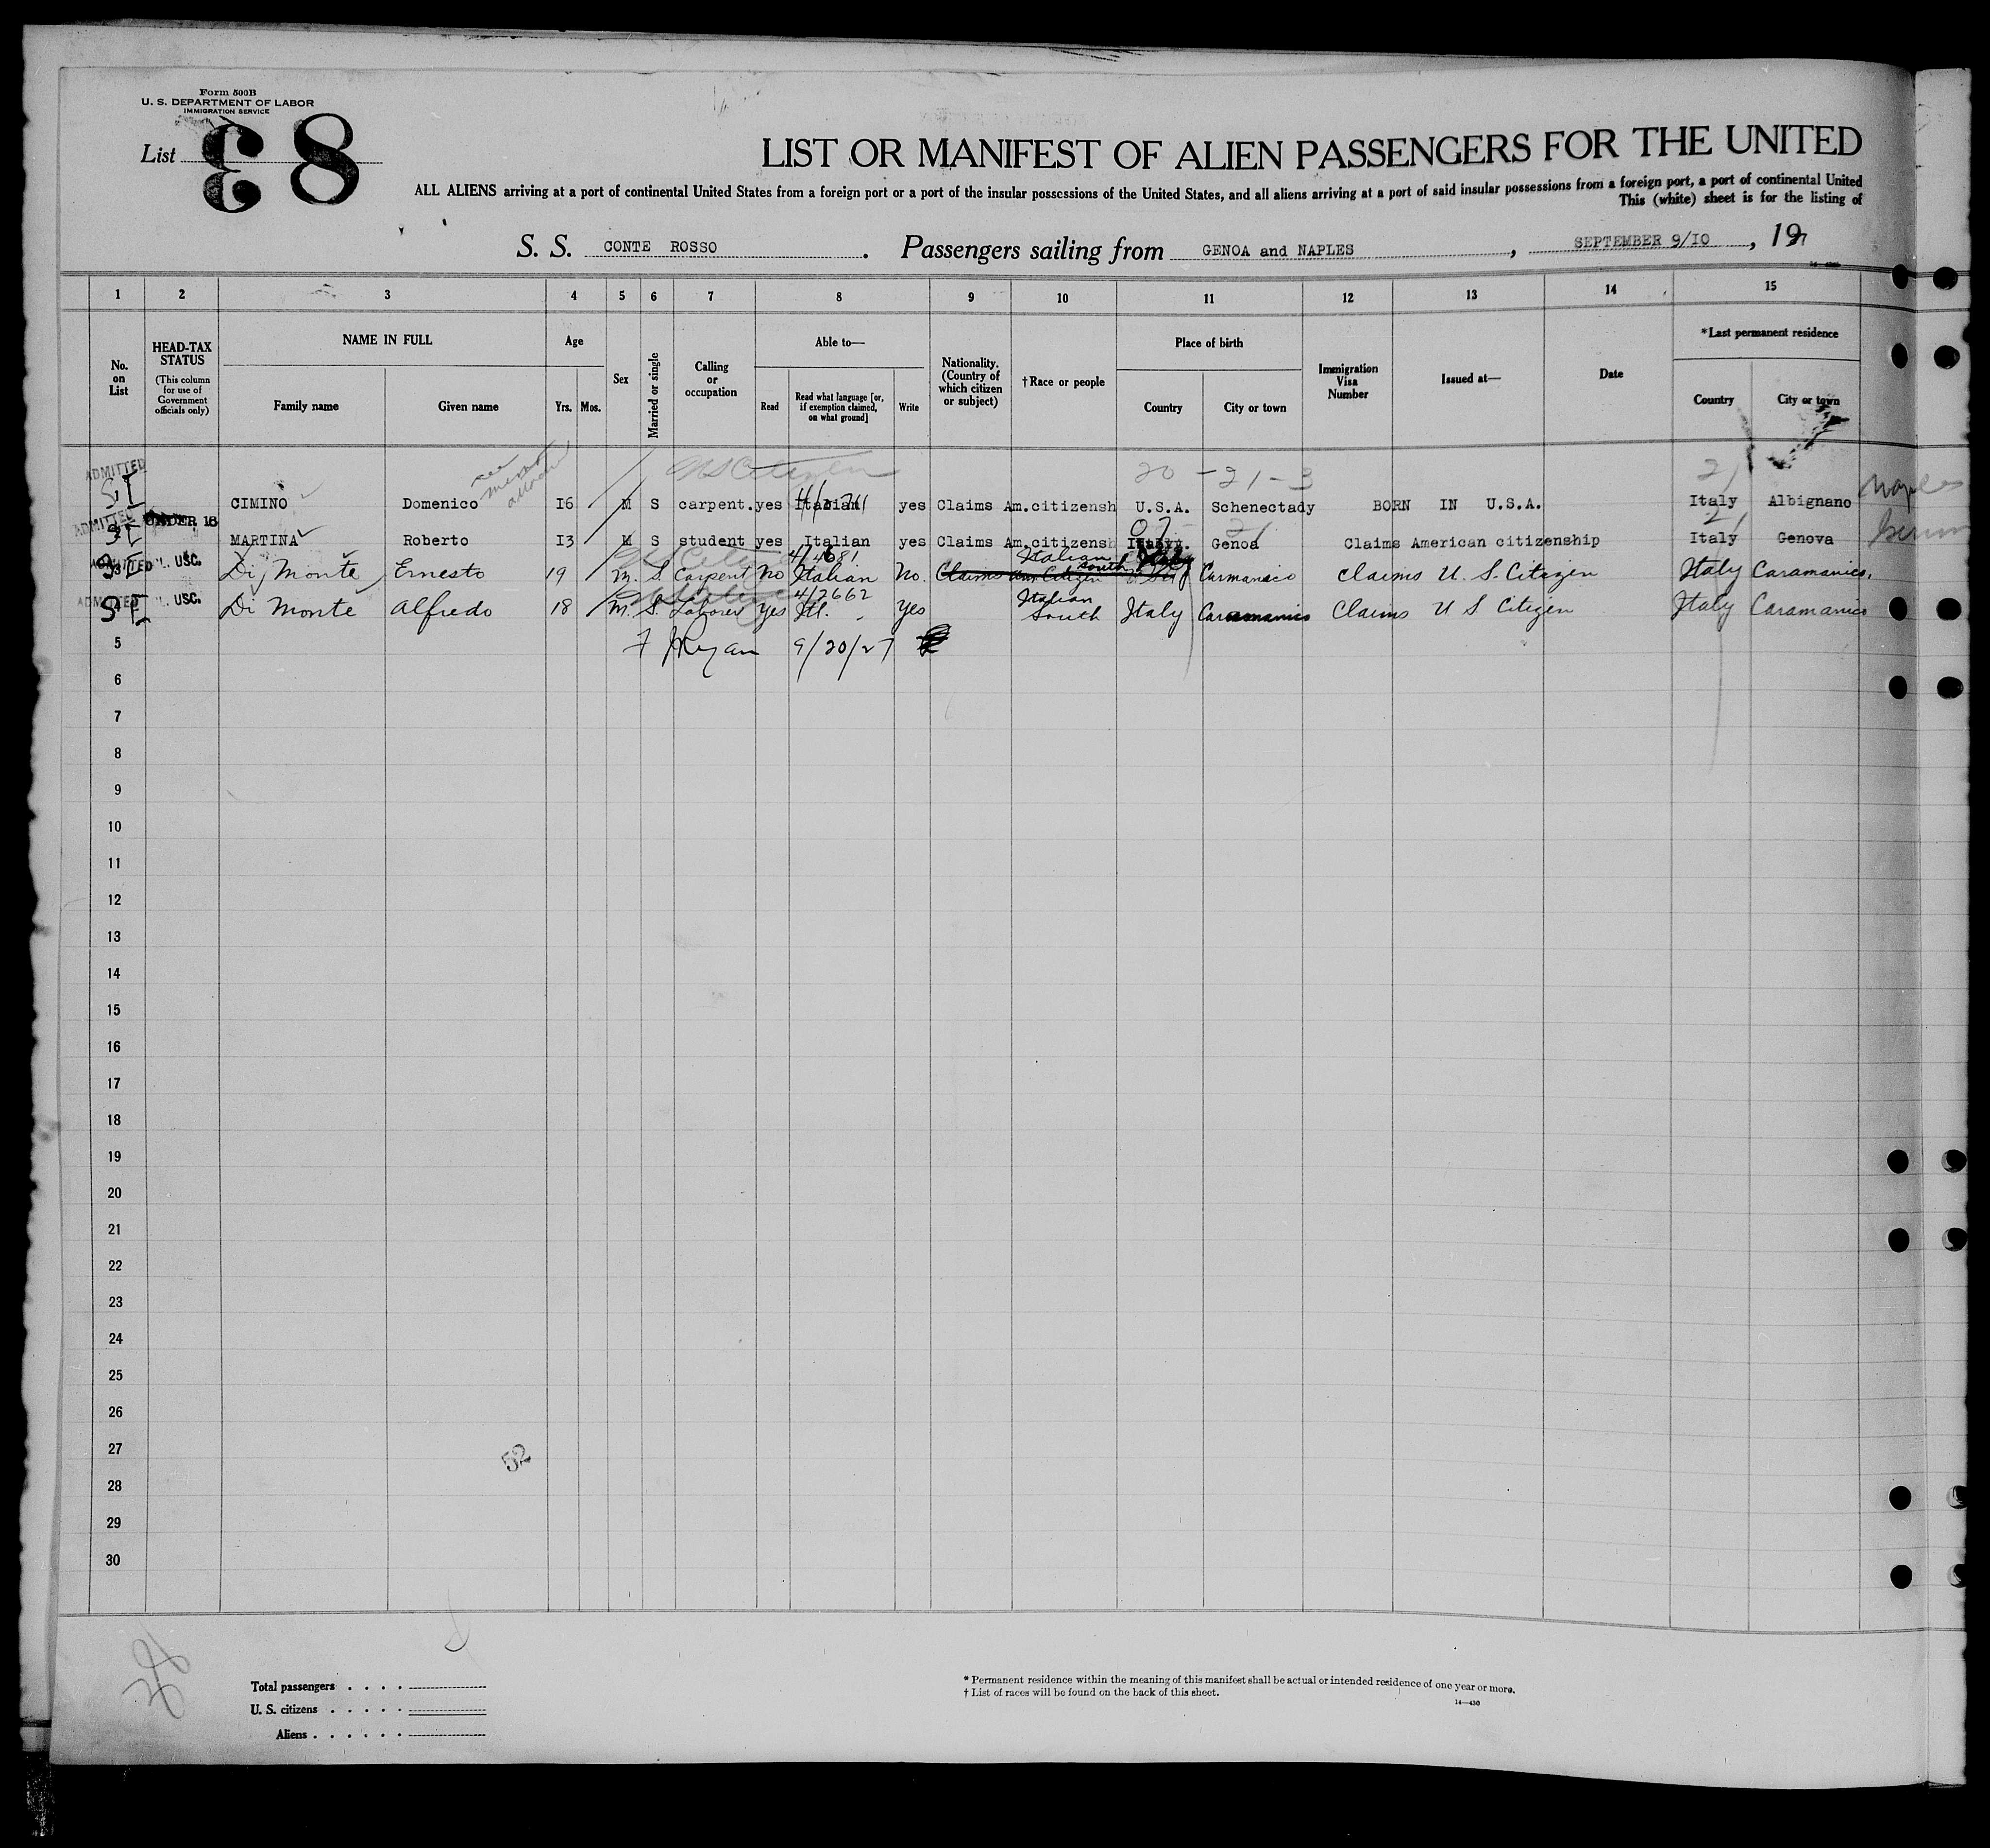 Form 500B
U. S. DEPARTMENT OF LABOR
IMMIGRATION SERVICE
List 83
LIST OR MANIFEST OF ALIEN PASSENGERS FOR THE UNITED
ALL ALIENS arriving at a port of continental United States from a foreign port or a port of the insular possessions of the United States, and all aliens arriving at a port of said insular possessions from a foreign port, a port of continental United
This (white) sheet is for the listing of
S. S. CONTE ROSSO . Passengers sailing from GENOA and NAPLES , SEPTEMBER 9/10 , 19
1 2 3 4 5 6 7 8 9 10 11 12 13 14 15
No. on List
HEAD-TAX STATUS
(This column for use of Government officials only)
NAME IN FULL
Family name Given name
Age
Yrs. Mos.
Sex
Married or single
Calling or occupation
Able to—
Read
Read what language [or, if exemption claimed, on what ground]
Write
Nationality. (Country of which citizen or subject)
†Race or people
Place of birth
Country City or town
Immigration Visa Number
Issued at—
Date
*Last permanent residence
Country City or town
see memo attached
20 - 21 - 3
ADMITTED SI CIMINO Domenico 16 M S carpent. yes Italian yes Claims Am.citizensh U.S.A. Schenectady BORN IN U.S.A. Italy Albignano Naples
ADMITTED SI UNDER 16 MARTINA Roberto 13 M S student yes Italian yes Claims Am.citizensh Genoa Claims American citizenship Italy Genova
ADMITTED SI USC. Di Monte Ernesto 19 M. S Carpent No Italian No. Claims Am Citizen Italian South Carmanico Claims U. S. Citizen Italy Caramanico.
4/2662
ADMITTED SI USC. Di Monte Alfredo 18 M. S. Laborer Yes Itl. Yes Italian South Italy Caramanico Claims U S Citizen Italy Caramanico
5 F J Ryan 9/20/27
6
7
8
9
10
11
12
13
14
15
16
17
18
19
20
21
22
23
24
25
26
27
52
28
29
30
Total passengers
U. S. citizens
Aliens
* Permanent residence within the meaning of this manifest shall be actual or intended residence of one year or more.
† List of races will be found on the back of this sheet.
14—430